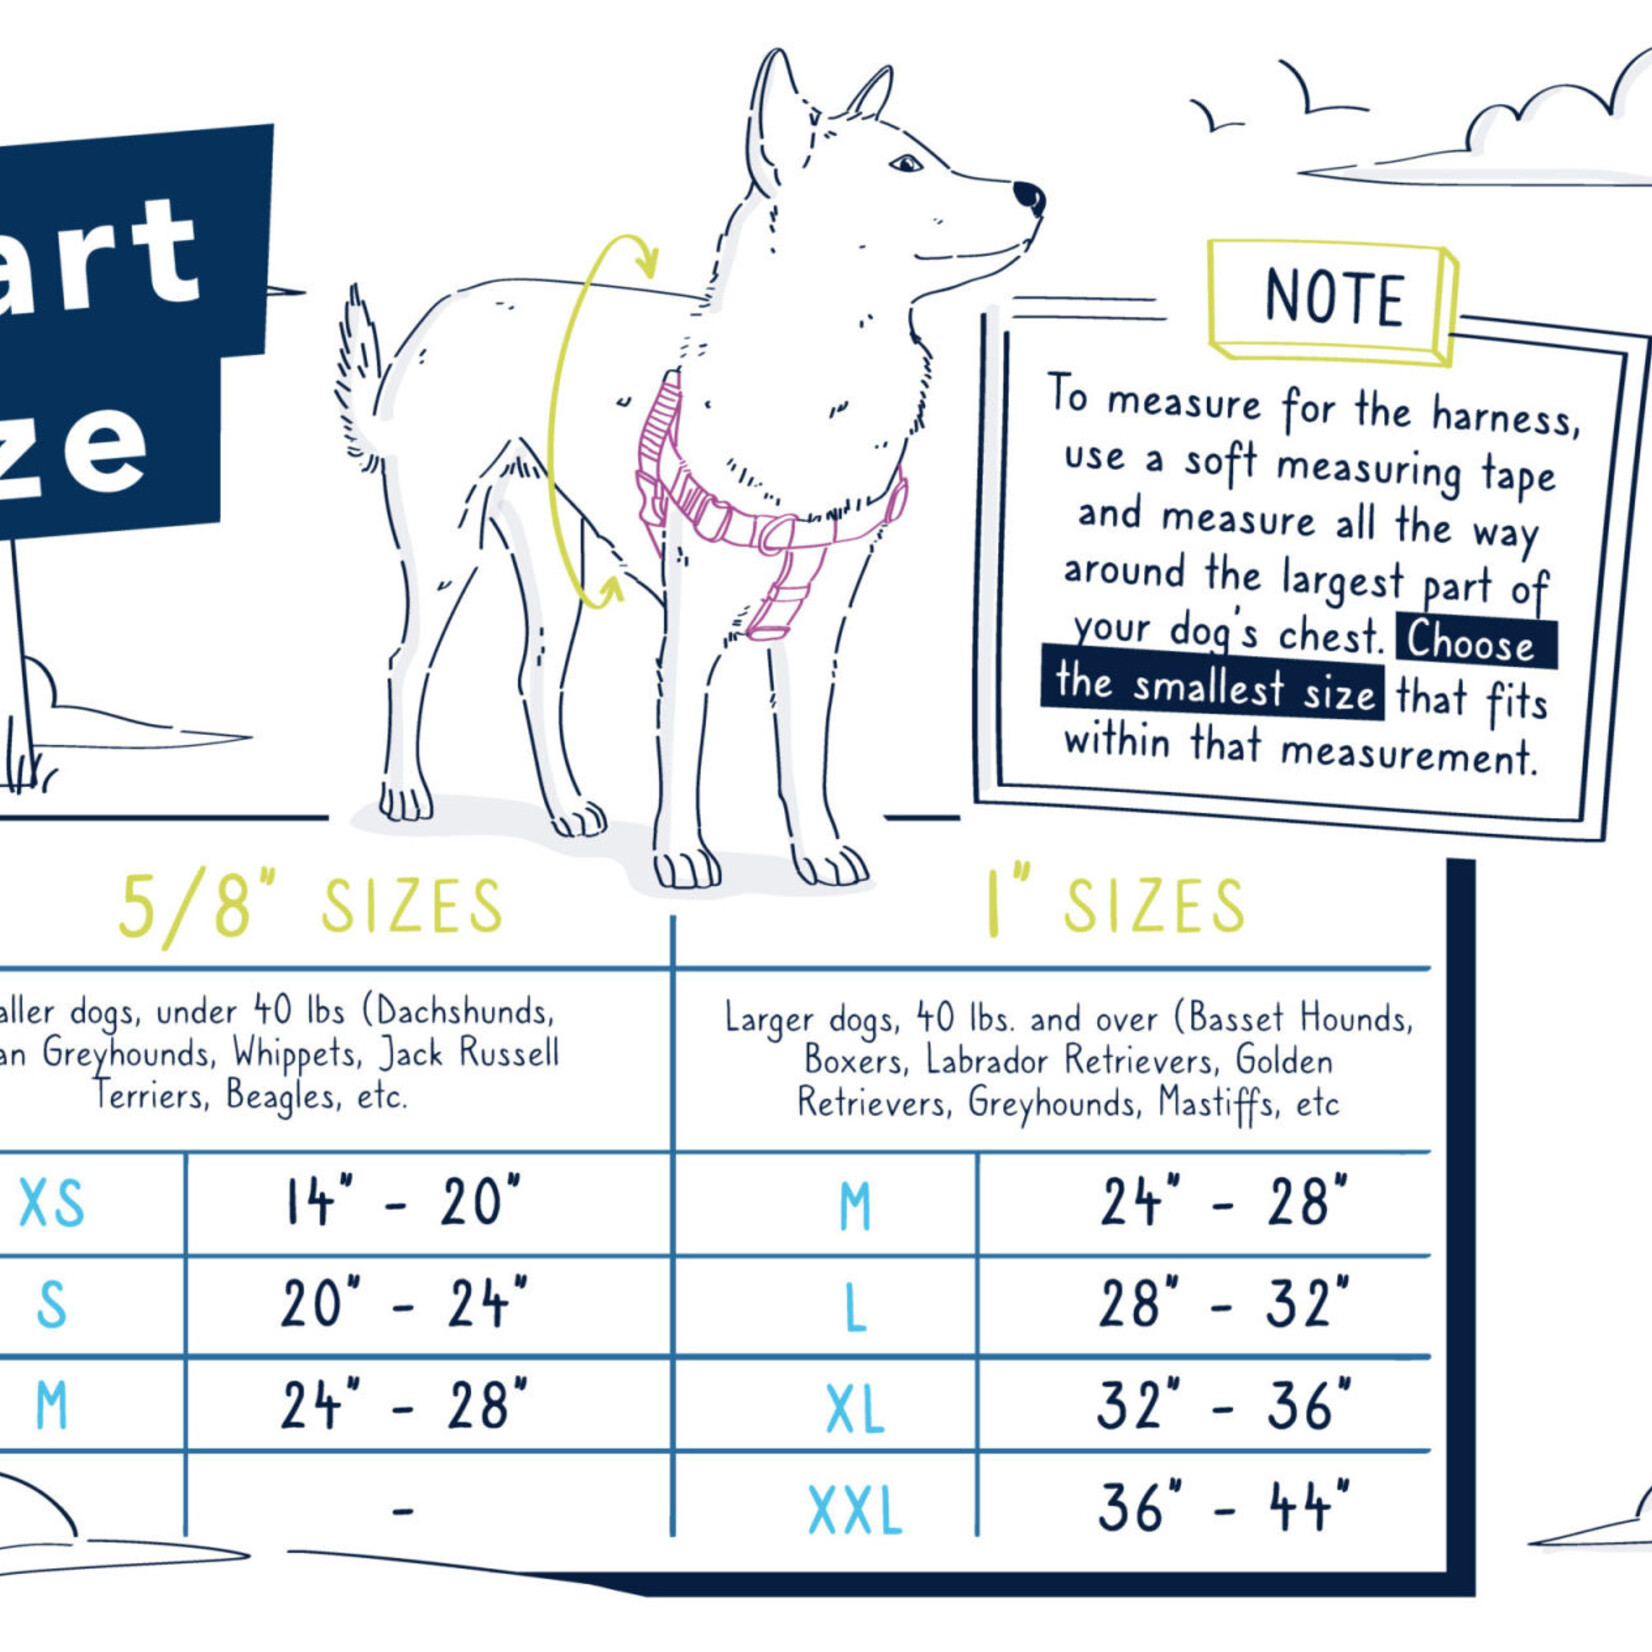 art
ze
NOTE
To measure for the harness,
use a soft measuring tape
and measure all the way
around the largest part of
your dog's chest. Choose
the smallest size that fits
within that measurement.
5/8" SIZES
1" SIZES
aller dogs, under 40 lbs (Dachshunds,
an Greyhounds, Whippets, Jack Russell
Terriers, Beagles, etc.
Larger dogs, 40 lbs. and over (Basset Hounds,
Boxers, Labrador Retrievers, Golden
Retrievers, Greyhounds, Mastiffs, etc
XS 14" - 20" M 24" - 28"
S 20" - 24" L 28" - 32"
M 24" - 28" XL 32" - 36"
- XXL 36" - 44"